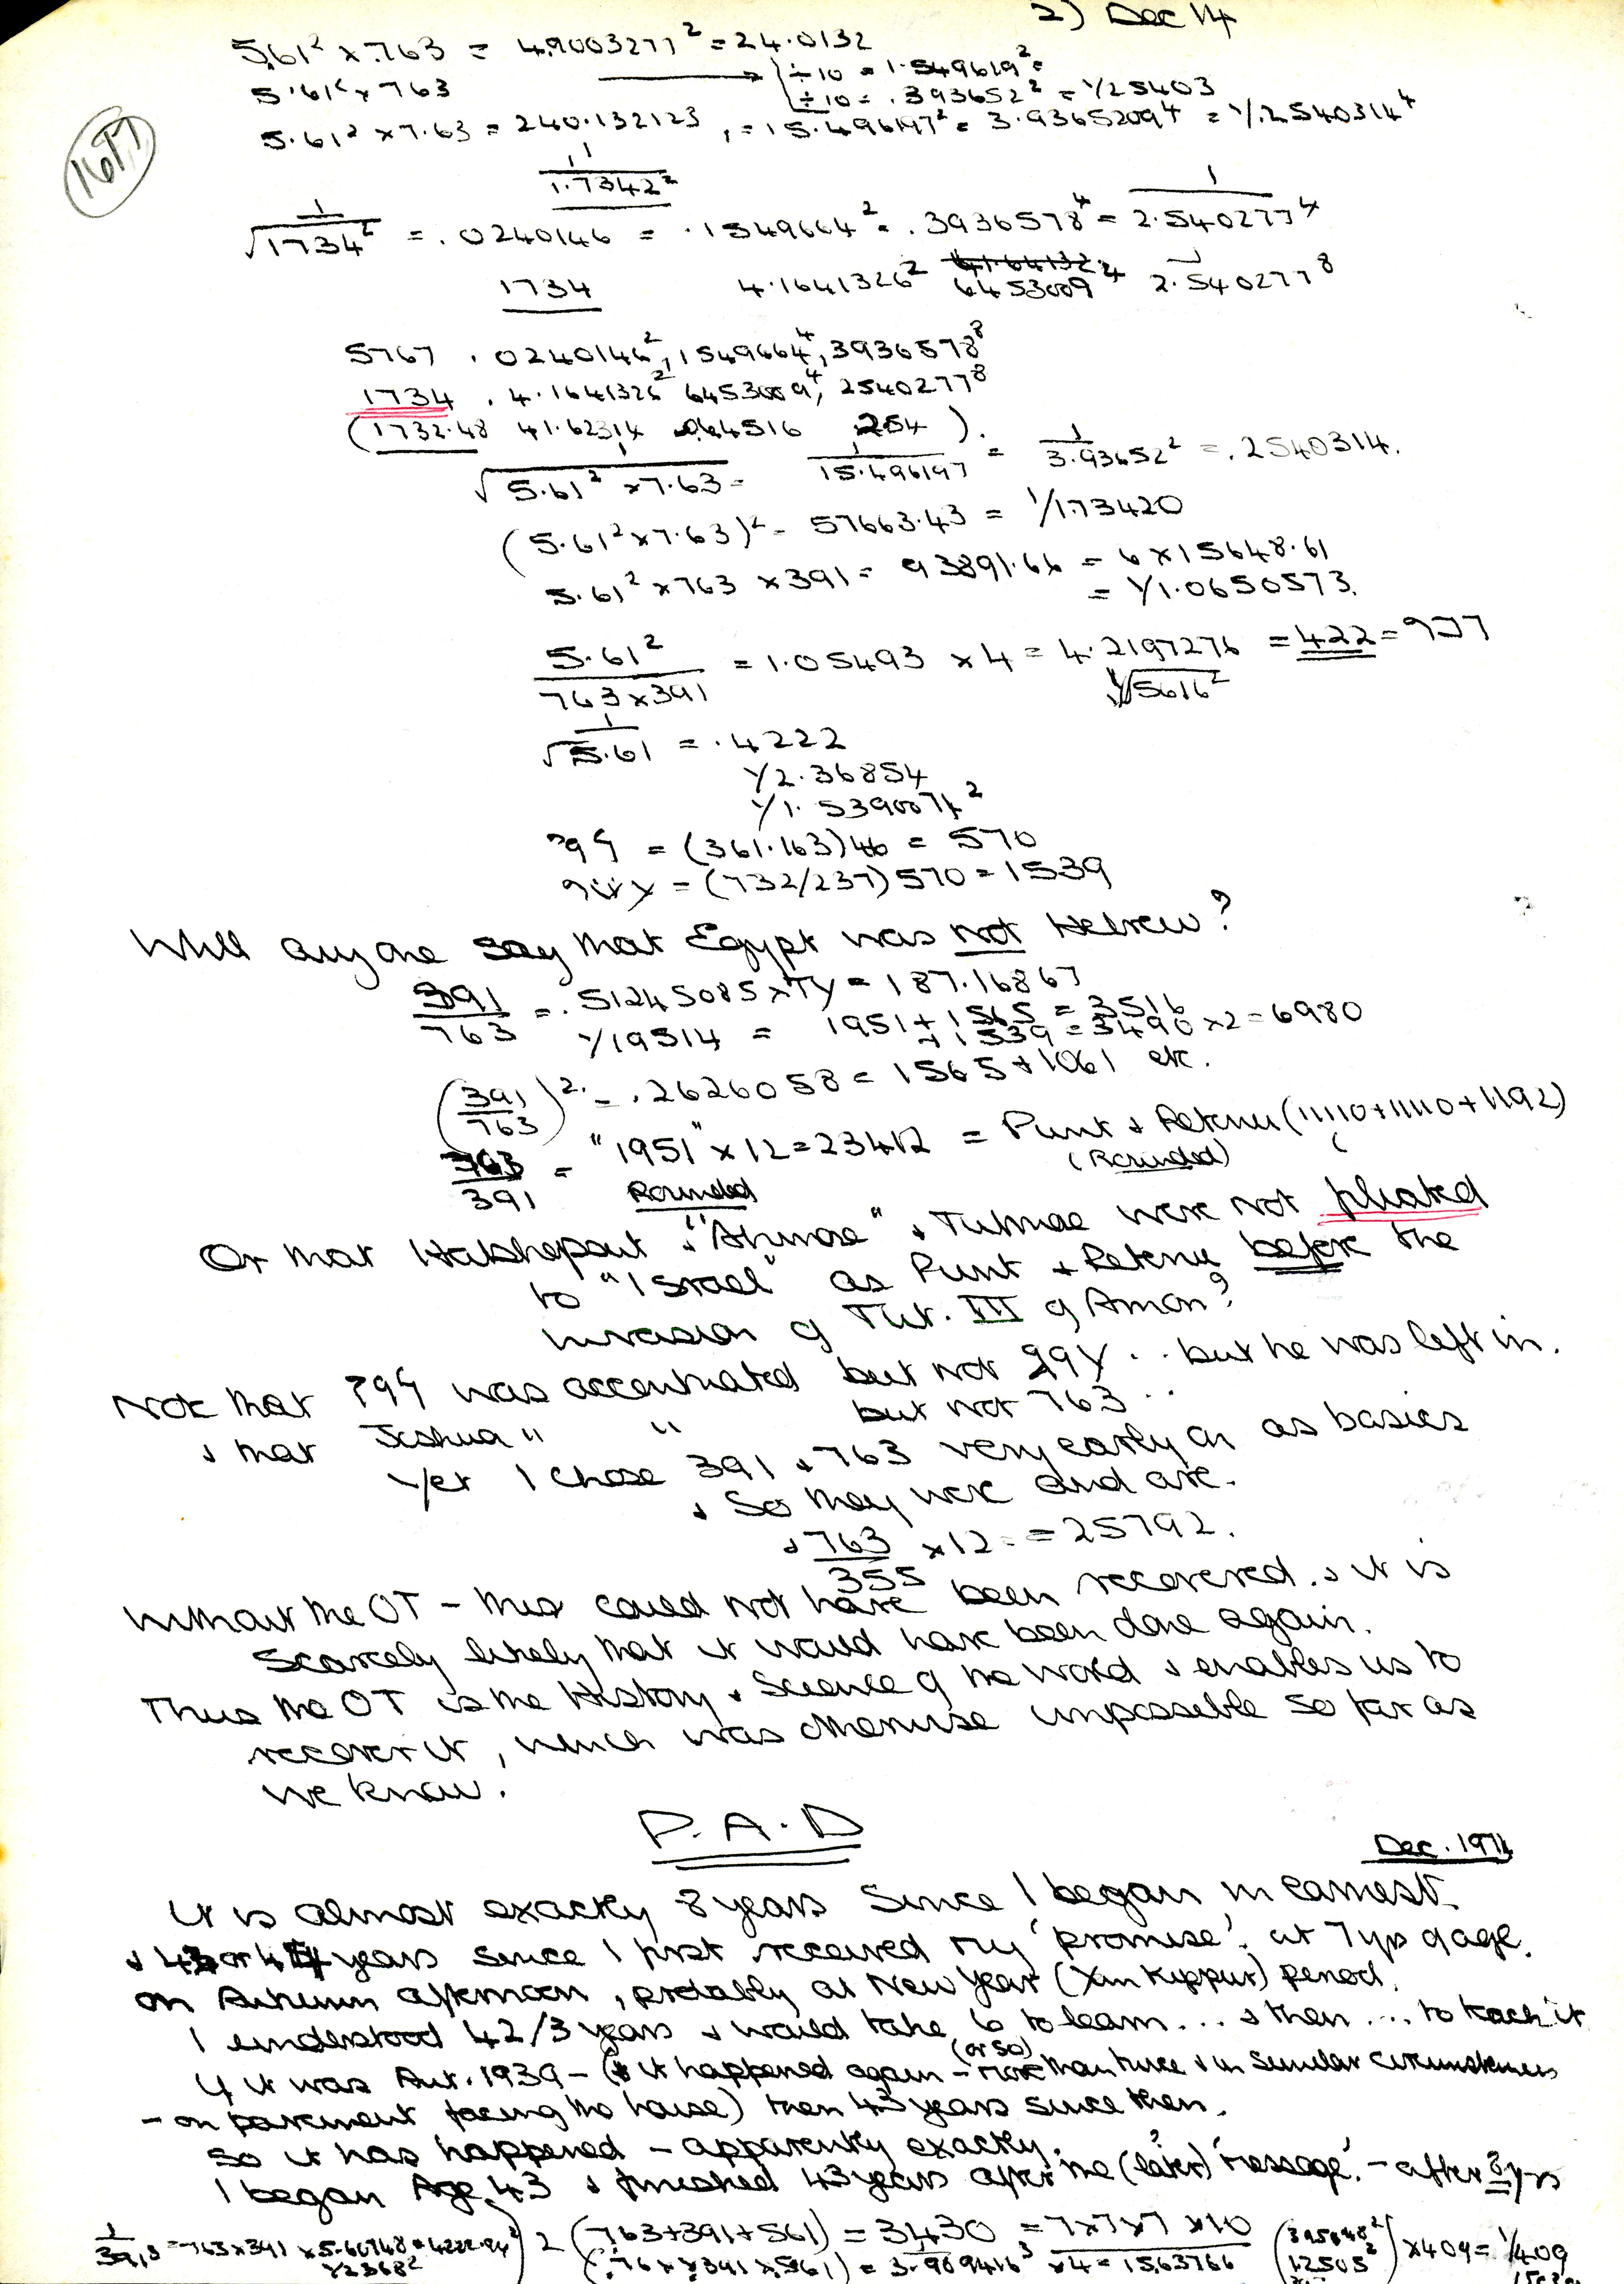 2) Dec 14
5.61² x .763 = 4.9003277² = 24.0132
÷10 = 1.549619² =
5.61² x 763
÷10 = .393652² = 1/25403
16TT
5.61² x 7.63 = 240.132123, = 15.496197² = 3.93652094 = 1/.2540314⁴
1/1.7342²
1/√1734² = .0240146 = .1549664² = .3936578⁴ = 1/2.540277⁴
1734 4.1641326² 6453009⁴ 2.540277⁸
5767 . 0240146², 1549664⁴, 3936578⁸
1734 . 4.1641326² 6453009⁴, 2540277⁸
(1732.48 41.62314 .064516 254).
1/√5.61² x 7.63 = 1/15.496197 = 1/3.93652² = .2540314.
(5.61² x 7.63)² = 57663.43 = 1/173420
5.61² x 763 x 391 = 93891.66 = 6 x 15648.61
= 1/1.0650573.
5.61²/763 x 391 = 1.05493 x 4 = 4.2197276 = 422 =
√5616²
1/√5.61 = .4222
1/2.36854
1/1.5390071²
= (361.163)46 = 570
= (732/237) 570 = 1539
Will anyone say that Egypt was not Hebrew?
391/763 = .51245085 x TY = 187.16867
1/19514 = 1951 + 1565 = 3516
+ 1539 = 3490 x 2 = 6980
(391/763)² = .2626058 = 1565 + 1061 etc.
763/391 = "1951" x 12 = 23412 = Punt + Retenu (11110 + 11110 + 1192)
Rounded (Rounded)
Or that Hatshepsut, "Ahmose" + Tutmae were not pliated
to "Israel" as Punt + Retenu before the
invasion of Tut. III of Amon?
Note that was accentuated but not .. but he was left in.
+ that Joshua " " but not 763 ..
Yet I chose 391 + 763 very early on as basics
+ so they were and are.
+ 763/355 x 12 = = 25792.
Without the OT – this could not have been recovered. + it is
scarcely likely that it would have been done again.
Thus the OT is the History + Science of the World + enables us to
recover it, which was otherwise impossible so far as
we know.
P.A.D
Dec. 1974
It is almost exactly 8 years since I began in earnest
+ 43 or 44 years since I first received my 'promise'. at 7 yrs of age.
on Autumn afternoon, probably at New Year (Yom Kippur) period.
I understood 42/3 years + would take 6 (or so) to learn... + then ... to teach it
If it was Aut. 1939 – (+ it happened again – more than twice + in similar circumstances
– on pavement facing the house) then 43 years since then.
So it has happened – apparently exactly.
I began Age 43 + finished 43 years after the (later) 'message'. – after 8 yrs
1/391³ = 763 x 391 x 5.60748 = 4222.94² 2 (763 + 391 + 561) = 3430 = 7 x 7 x 7 x 10 x 409 = 1/409
1/2368² = 3.909416³ x 4 = 15.63766